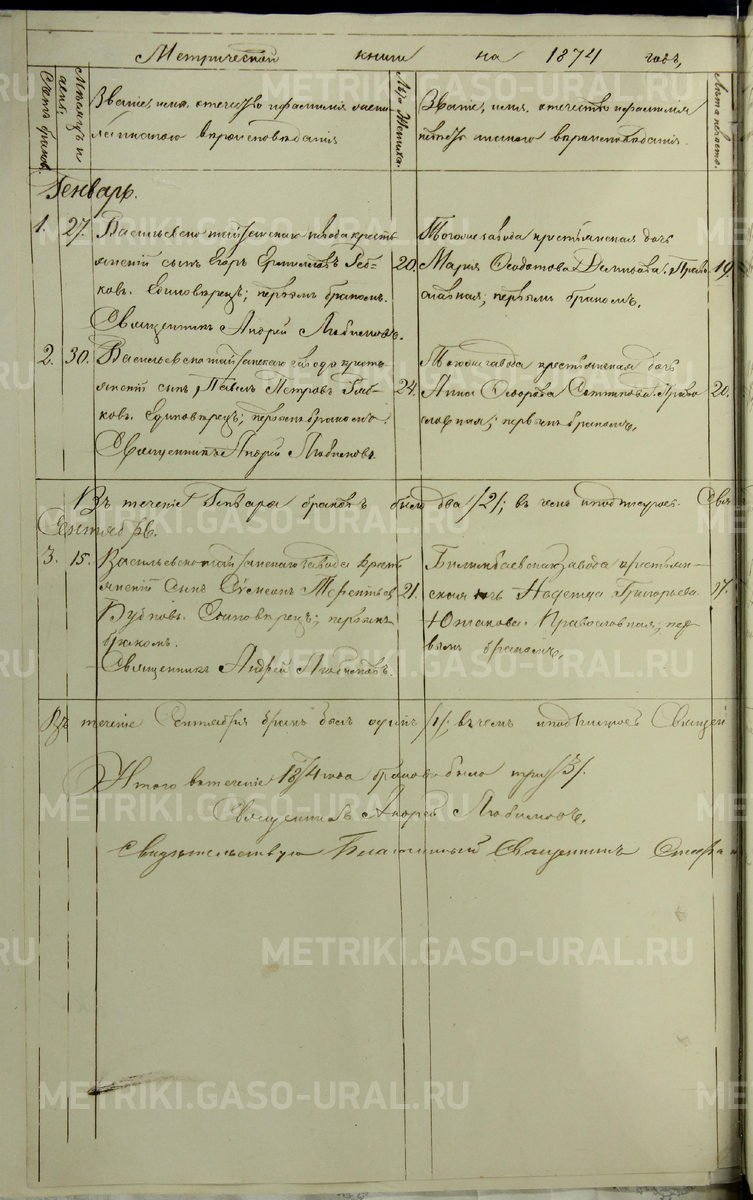 Метрической книги на 1874 годъ,
Счетъ браков.
Месяцъ и день.
Званіе, имя, отечество и фамилия
и какого вероисповеданія
Лета Жениха.
Званіе, имя, отечество и фамилия
невесты и какого вероисповеданія.
Лета невесты.
Генварь.
1. 27. Васильевскошайтанскаго завода кресть
янскій сынъ Егоръ Ермиловъ
Единоверецъ; первымъ бракомъ.
Священникъ Андрей Любимовъ.
20.
Тогоже завода крестьянская дочь
Мария Федотова Право
славная; первымъ бракомъ.
19
2. 30. Васильевскошайтанскаго завода кресть
янскій сынъ, Павелъ Петровъ
Единоверецъ; первымъ бракомъ.
Священникъ Андрей Любимовъ.
24.
Тогоже завода крестьянская дочь
Анна Федорова Право
славная; первымъ бракомъ,
20.
Въ теченіе Генваря браковъ было два /2/; въ чемъ и подписуюсь. Свя
Сентябрь.
3. 15. Васильевскошайтанскаго завода кресть
янскій сынъ Симеонъ Терентьев
Бубновъ. Единоверецъ; первымъ
бракомъ.
Священникъ Андрей Любимовъ.
21.
Билимбаевскаго завода крестьян-
ская дочь Надежда Григорьева
Православная; пер-
вымъ бракомъ,
17.
Въ теченіе Сентября бракъ былъ одинъ /1/; въ чемъ и подписуюсь Священ
Итого въ теченіе 1874 года браковъ было три /3/.
Священникъ Андрей Любимовъ.
Свидетельствую Благочинный Священникъ
METRIKI.GASO-URAL.RU